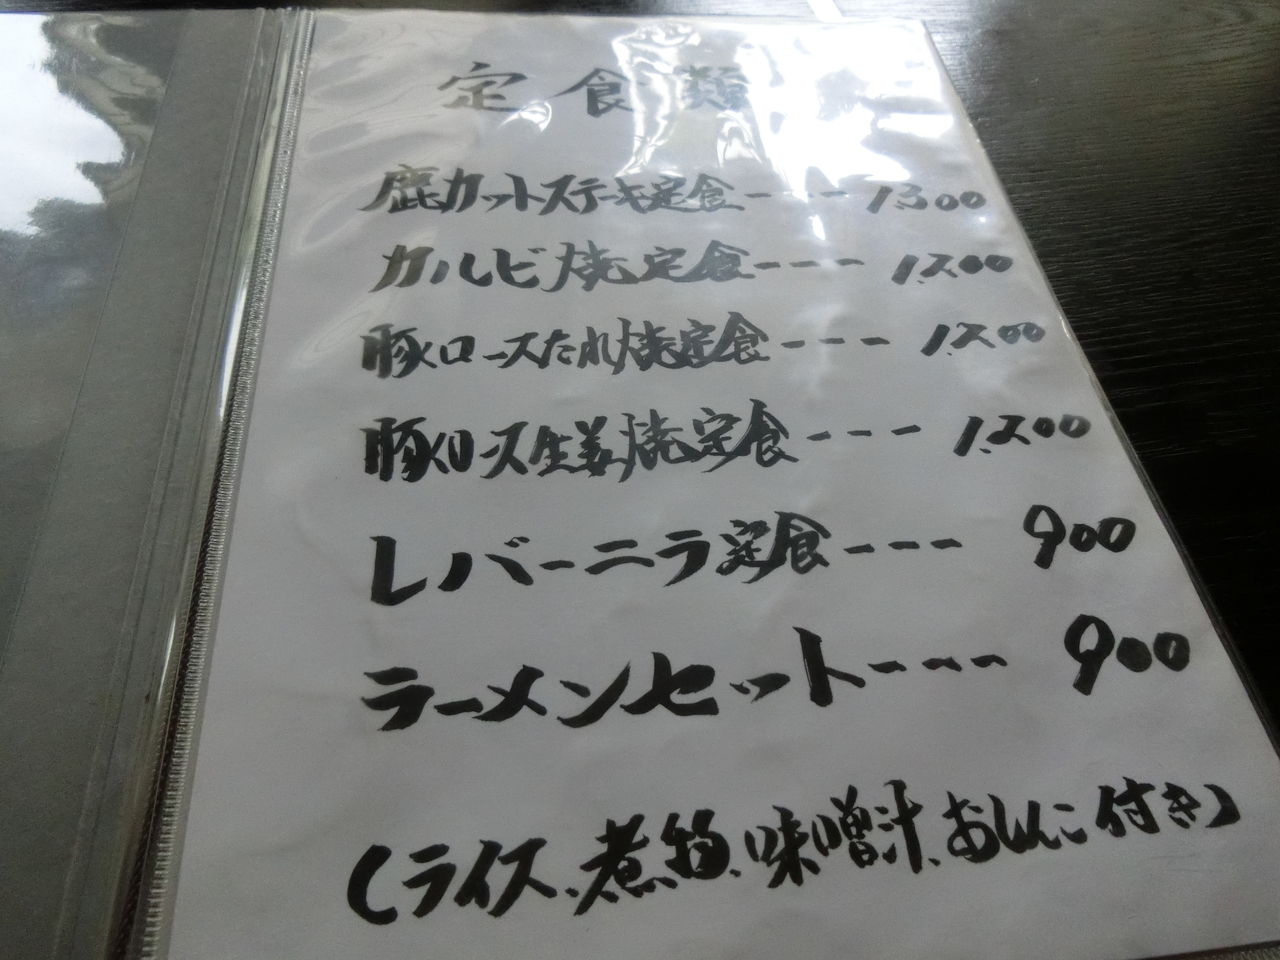 定食類
鹿カットステーキ定食---- 1.300
カルビ焼定食---- 1.200
豚ロースたれ焼定食---- 1.200
豚ロース生姜焼定食---- 1.200
レバーニラ定食---- 900
ラーメンセット---- 900
(ライス、煮物、味噌汁、おしんこ付き)